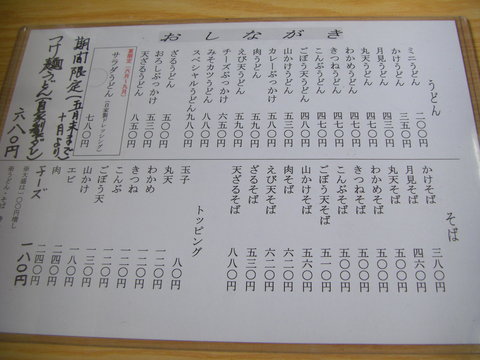 おしながき
うどん
ミニうどん 二〇〇円
かけうどん 三五〇円
月見うどん 四三〇円
丸天うどん 四七〇円
わかめうどん 四七〇円
きつねうどん 四七〇円
こんぶうどん 四七〇円
ごぼう天うどん 四八〇円
山かけうどん 五三〇円
カレーぶっかけ 五五〇円
肉うどん 五九〇円
えび天うどん 五九〇円
チーズぶっかけ 六五〇円
みそカツうどん 九八〇円
スペシャルうどん 九八〇円
ざるうどん 五〇〇円
おろしぶっかけ 五三〇円
天ざるうどん 八五〇円
夏限定(六月〜九月)
サラダうどん(自家製ドレッシング) 七八〇円
期間限定(五月末まで 十月より)
つけ麺うどん(自家製ダレ) 六八〇円
そば
かけそば 三八〇円
月見そば 四六〇円
丸天そば 五〇〇円
わかめそば 五〇〇円
きつねそば 五〇〇円
こんぶそば 五〇〇円
ごぼう天そば 五一〇円
山かけそば 五六〇円
肉そば 六二〇円
えび天そば 六二〇円
ざるそば 五三〇円
天ざるそば 八八〇円
トッピング
玉子 八〇円
丸天 一二〇円
わかめ 一二〇円
きつね 一二〇円
こんぶ 一二〇円
ごぼう天 一三〇円
山かけ 一八〇円
エビ 二四〇円
肉 二四〇円
チーズ 一八〇円
※大盛は一〇〇円増し